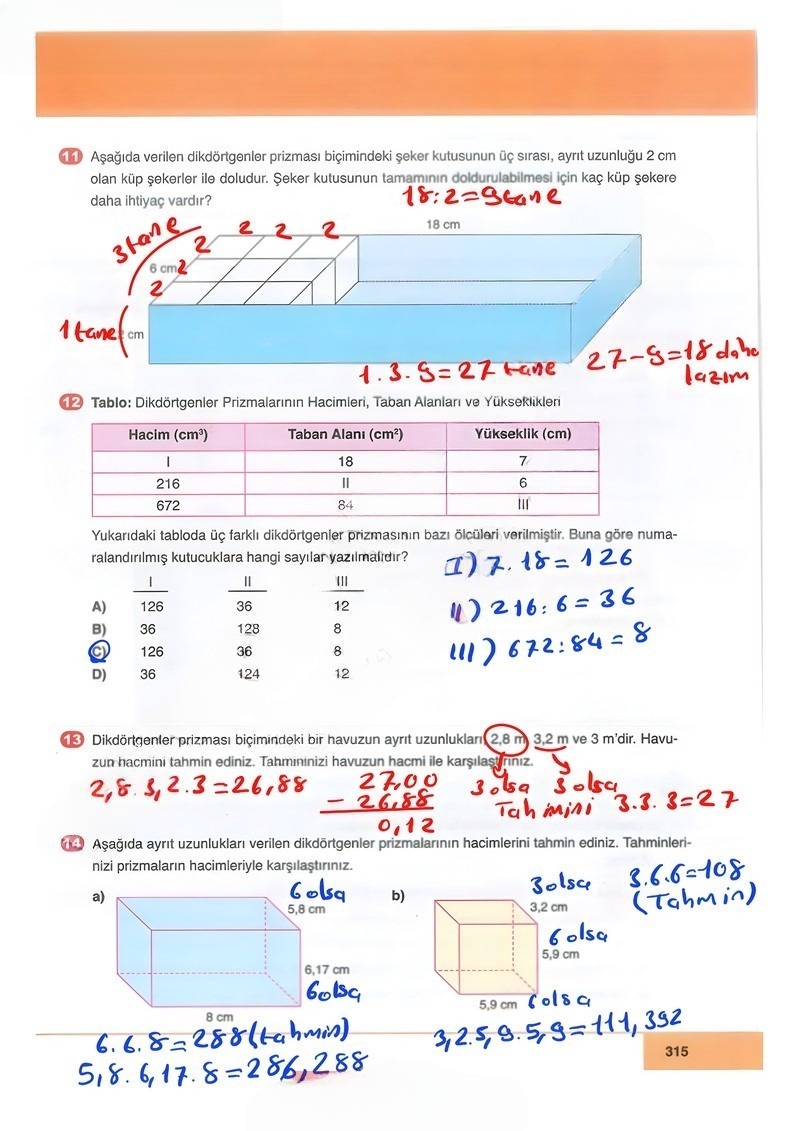 11 Aşağıda verilen dikdörtgenler prizması biçimindeki şeker kutusunun üç sırası, ayrıt uzunluğu 2 cm
olan küp şekerler ile doludur. Şeker kutusunun tamamının doldurulabilmesi için kaç küp şekere
daha ihtiyaç vardır?
18:2=9tane
3tane 2 2 2 2
18 cm
6 cm 2
2
1tane cm
1.3.9=27 tane
27-9=18 daha
lazım
12 Tablo: Dikdörtgenler Prizmalarının Hacimleri, Taban Alanları ve Yükseklikleri
Hacim (cm³) Taban Alanı (cm²) Yükseklik (cm)
I 18 7
216 II 6
672 84 III
Yukarıdaki tabloda üç farklı dikdörtgenler prizmasının bazı ölçüleri verilmiştir. Buna göre numa-
ralandırılmış kutucuklara hangi sayılar yazılmalıdır?
I II III
A) 126 36 12
B) 36 128 8
C) 126 36 8
D) 36 124 12
I) 7.18=126
II) 216:6=36
III) 672:84=8
13 Dikdörtgenler prizması biçimindeki bir havuzun ayrıt uzunlukları 2,8 m, 3,2 m ve 3 m'dir. Havu-
zun hacmini tahmin ediniz. Tahmininizi havuzun hacmi ile karşılaştırınız.
2,8.3,2.3=26,88
27,00
- 26,88
0,12
3olsa 3olsa
Tahmini 3.3.3=27
14 Aşağıda ayrıt uzunlukları verilen dikdörtgenler prizmalarının hacimlerini tahmin ediniz. Tahminleri-
nizi prizmaların hacimleriyle karşılaştırınız.
a)
6olsa
5,8 cm
6,17 cm
6olsa
8 cm
6.6.8=288(tahmin)
5,8.6,17.8=286,288
b)
3olsa
3,2 cm
3.6.6=108
(Tahmin)
6olsa
5,9 cm
5,9 cm 6olsa
3,2.5,9.5,9=111,392
315